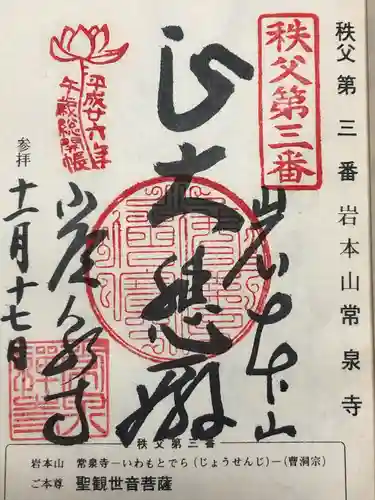 秩父第三番 岩本山常泉寺
秩父第三番
岩本山
大悲殿
岩常泉寺
平成廿六年
午歳総開帳
参拝
十一月十七日
秩父第三番
岩本山 常泉寺―いわもとでら(じょうせんじ)―(曹洞宗)
ご本尊 聖観世音菩薩